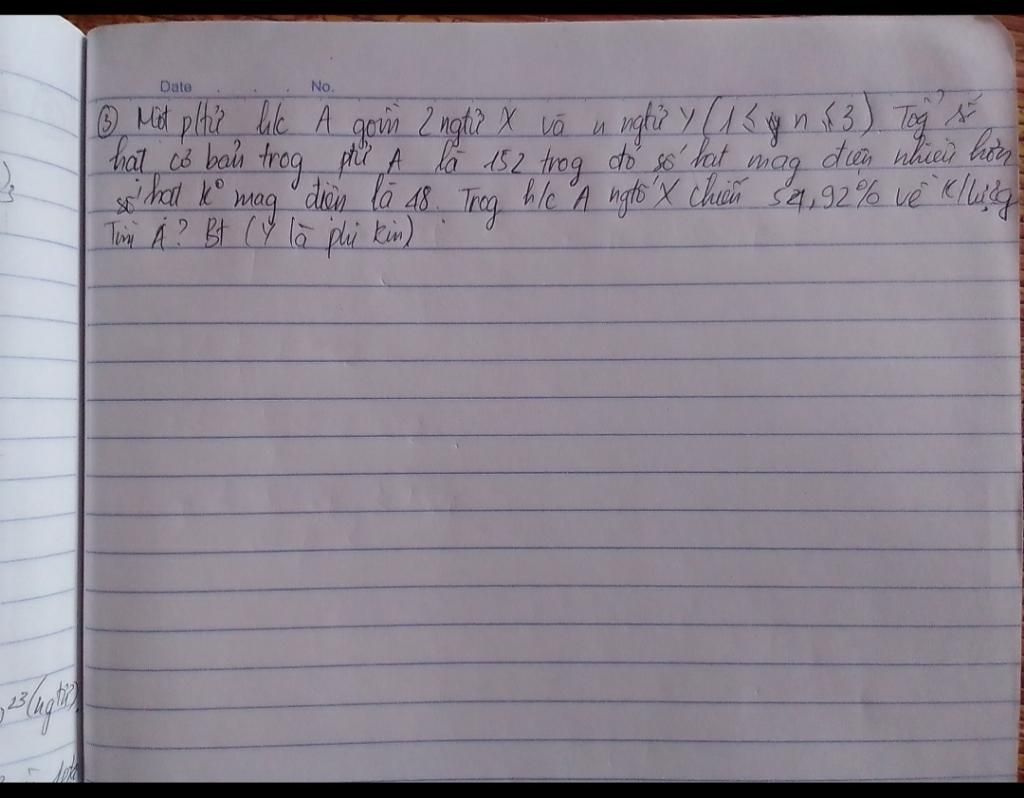 Date . . . No.
③ Một p/tử h/c A gồm 2 ngtử X và n ngtử Y (1 ≤ n ≤ 3). Tổg số
hạt cơ bản trog ptử A là 152 trog đó số hạt mag điện nhiều hơn
số hạt k⁰ mag điện là 48. Trog h/c A ngtố X chiếm 54,92% về k/lượg
Tìm A? Bt (Y là phi kim)
)₃
²³(ngtử)